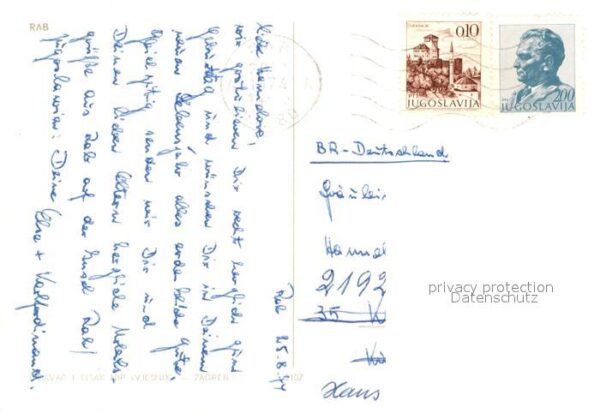 RAB
Liebe Hannelore!
wir gratulieren Dir recht herzlich zum
Geburtstag und wünschen Dir in Deinem
neuen Lebensjahr alles erdenkliche Gute.
Gleichzeitig senden wir Dir und
Deinen lieben Eltern herzliche Urlaubs-
grüße aus Rab auf der Insel Rab/
Jugoslawien: Deine Elsa + Karlferdinand.
Rab 25.8.74
0,10
JUGOSLAVIJA
2,00
JUGOSLAVIJA
BR-Deutschland
Fräulei
Hannel
2192
35 K
Hans
privacy protection
Datenschutz
ZAGREB